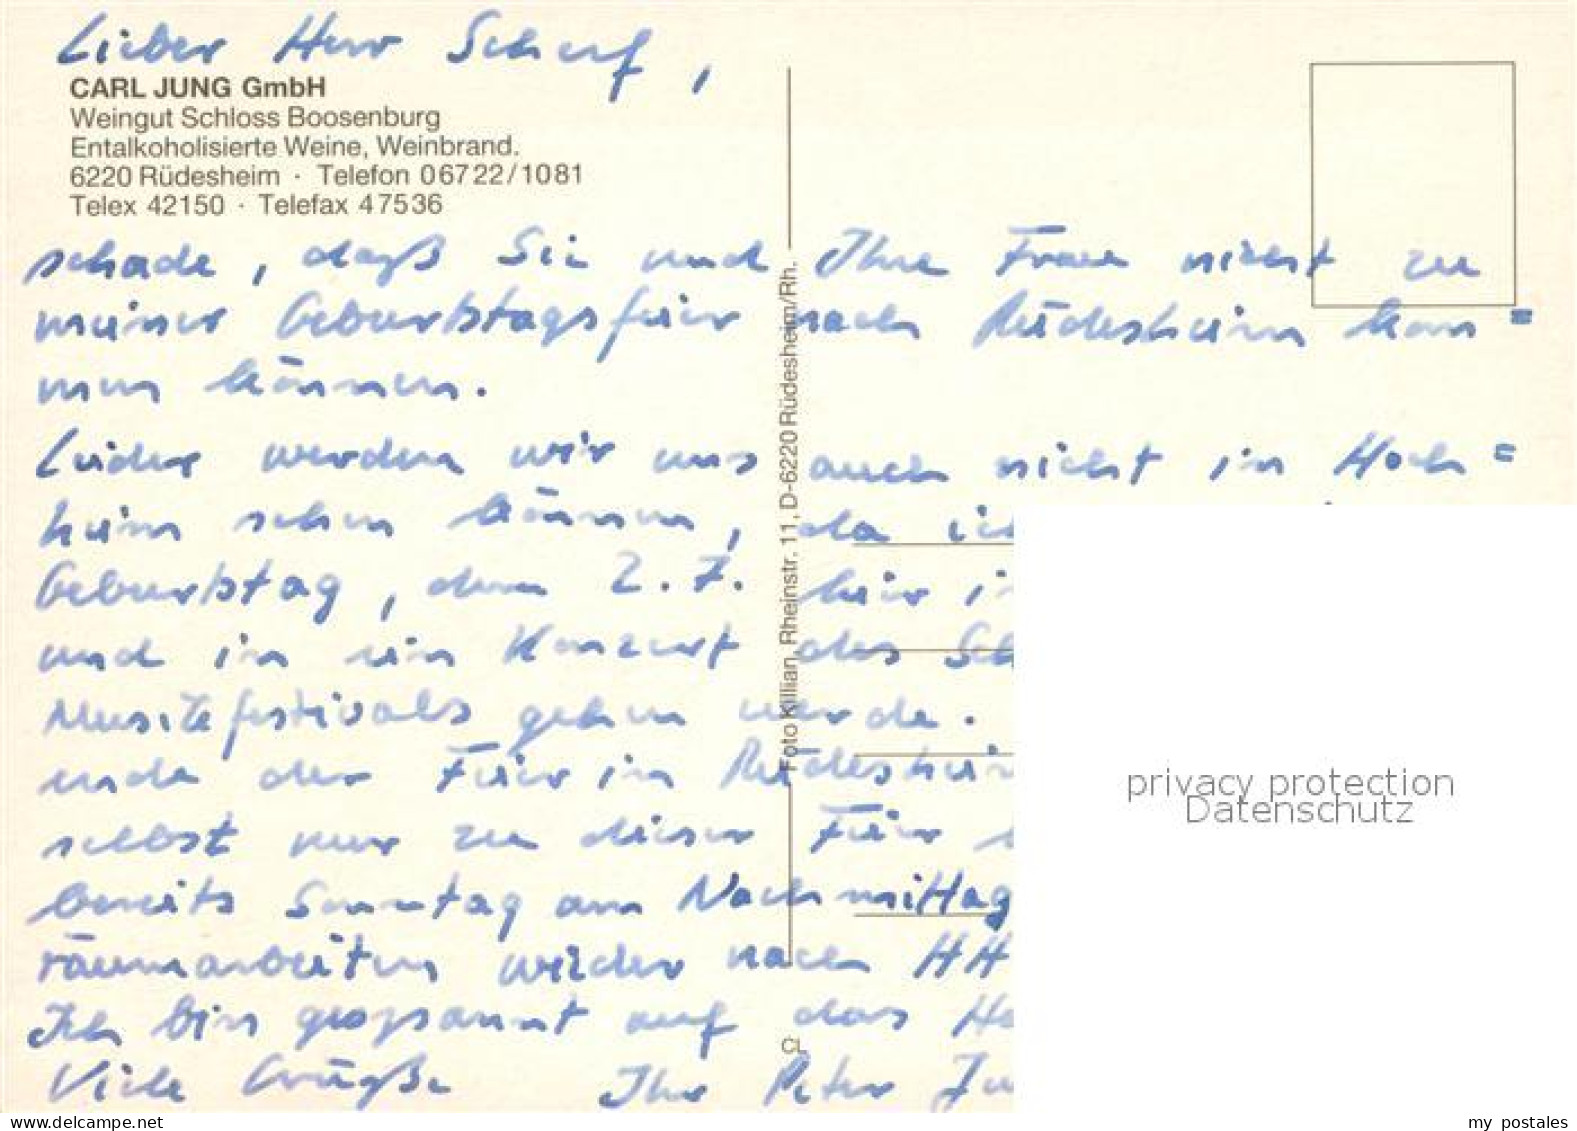 Lieber Herr Scharf,
CARL JUNG GmbH
Weingut Schloss Boosenburg
Entalkoholisierte Weine, Weinbrand.
6220 Rüdesheim · Telefon 06722/1081
Telex 42150 · Telefax 47536
schade, daß Sie und Ihre Frau nicht zu
meiner Geburtstagsfeier nach Rüdesheim kom=
men können.
Leider werden wir uns auch nicht in Hoch=
heim sehen können, da ich
Geburtstag, dem 2.7. hier i
und in ein Konzert des Sch
Musikfestivals gehen werde.
ende der Feier in Rüdesheim
selbst nur zu dieser Feier
bereits Sonntag am Nachmittag
räumarbeiten wieder nach HH
Ich bin gespannt auf das He
Viele Grüße Ihr Peter Ju
Foto Killian, Rheinstr. 11, D-6220 Rüdesheim/Rh.
CL
privacy protection
Datenschutz
www.delcampe.net
my_postales